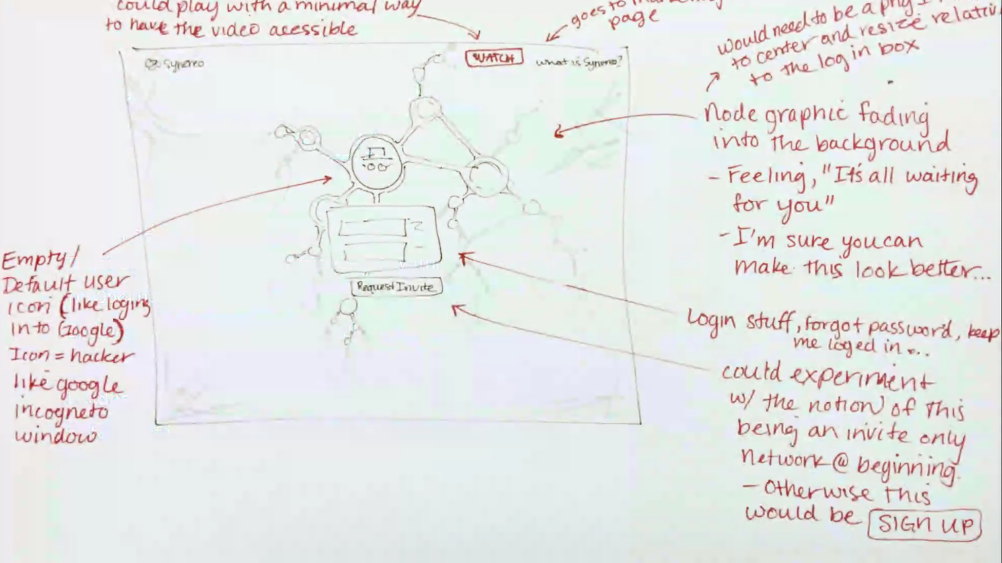 could play with a minimal way
to have the video acessible
goes to
page
would need to be a png
to center and resize relativ
to the log in box
Synereo
WATCH
What is Synereo?
Node graphic fading
into the background
- Feeling, "It's all waiting
for you"
- I'm sure you can
make this look better...
Empty/
Default user
icon (like loging
in to Google)
Icon = hacker
like google
incogneto
window
Request Invite
Login stuff, forgot password, keep
me loged in...
could experiment
w/ the notion of this
being an invite only
network @ beginning.
- Otherwise this
would be SIGN UP